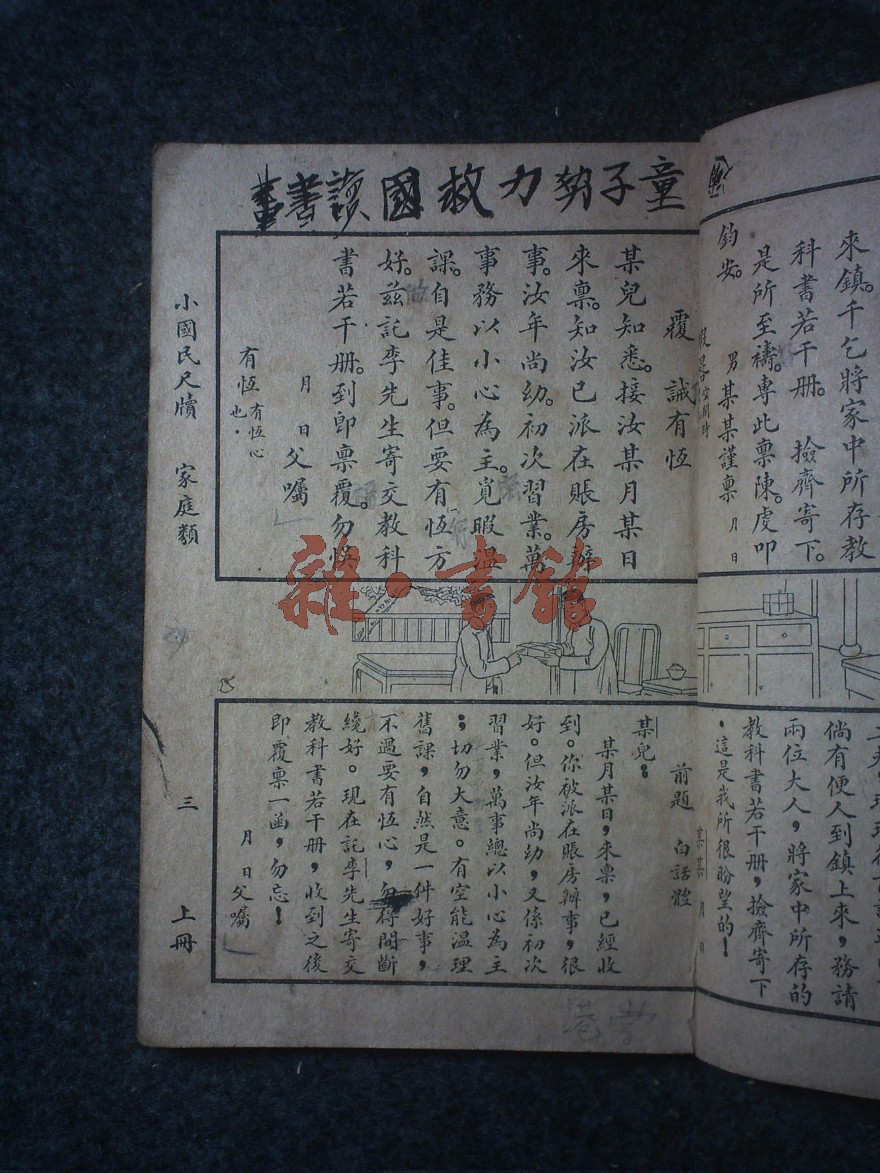 童子努力救國讀書
來鎮。千乞將家中所存教
科書若干册。撿齊寄下。
是所至禱。專此禀陳。虔叩
鈞安。
男某某謹禀 月 日
覆 誡有恆
某兒知悉。接汝某月某日
來禀。知汝已派在賬房辦
事。汝年尚幼。初次習業。萬
事務以小心為主。覓暇溫
課。自是佳事。但要有恆方
好。茲託李先生寄交教科
書若干册。到卽禀覆。勿悞。
月 日父囑
有恆 有恆心也。
小國民尺牘 家庭類 三 上冊
雜·書館
倘有便人到鎮上來，務請
兩位大人，將家中所存的
教科書若干册，撿齊寄下
。這是我所很盼望的！
某某 月 日
前題 白話體
某兒：
某月某日，來禀，已經收
到。你被派在賬房辦事，很
好。但汝年尚幼，又係初次
習業，萬事總以小心為主
；切勿大意。有空能溫理
舊課，自然是一件好事，
不過要有恆心，勿得間斷
纔好。現在託李先生寄交
教科書若干册，收到之後
卽覆禀一函，勿忘！
月 日父囑